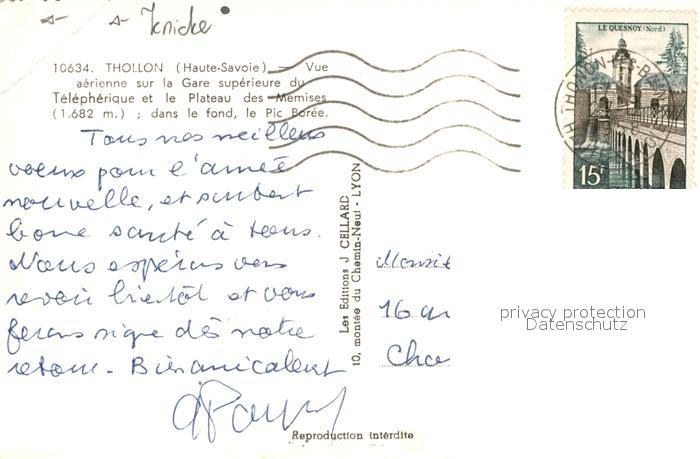 Knicke
10634. THOLLON (Haute-Savoie) — Vue
aérienne sur la Gare supérieure du
Téléphérique et le Plateau des Mémises
(1.682 m.) ; dans le fond, le Pic Borée.
Tous nos meilleurs
voeux pour l'année
nouvelle, et surtout
bonne santé à tous.
Nous espérons vous
revoir bientôt et vous
ferons signe dès notre
retour. Bien amicalement
Les Editions J CELLARD
10, montée du Chemin-Neuf - LYON
Reproduction interdite
LE QUESNOY (Nord)
15F
THONON-LES-B
Monsie
16
privacy protection
Datenschutz